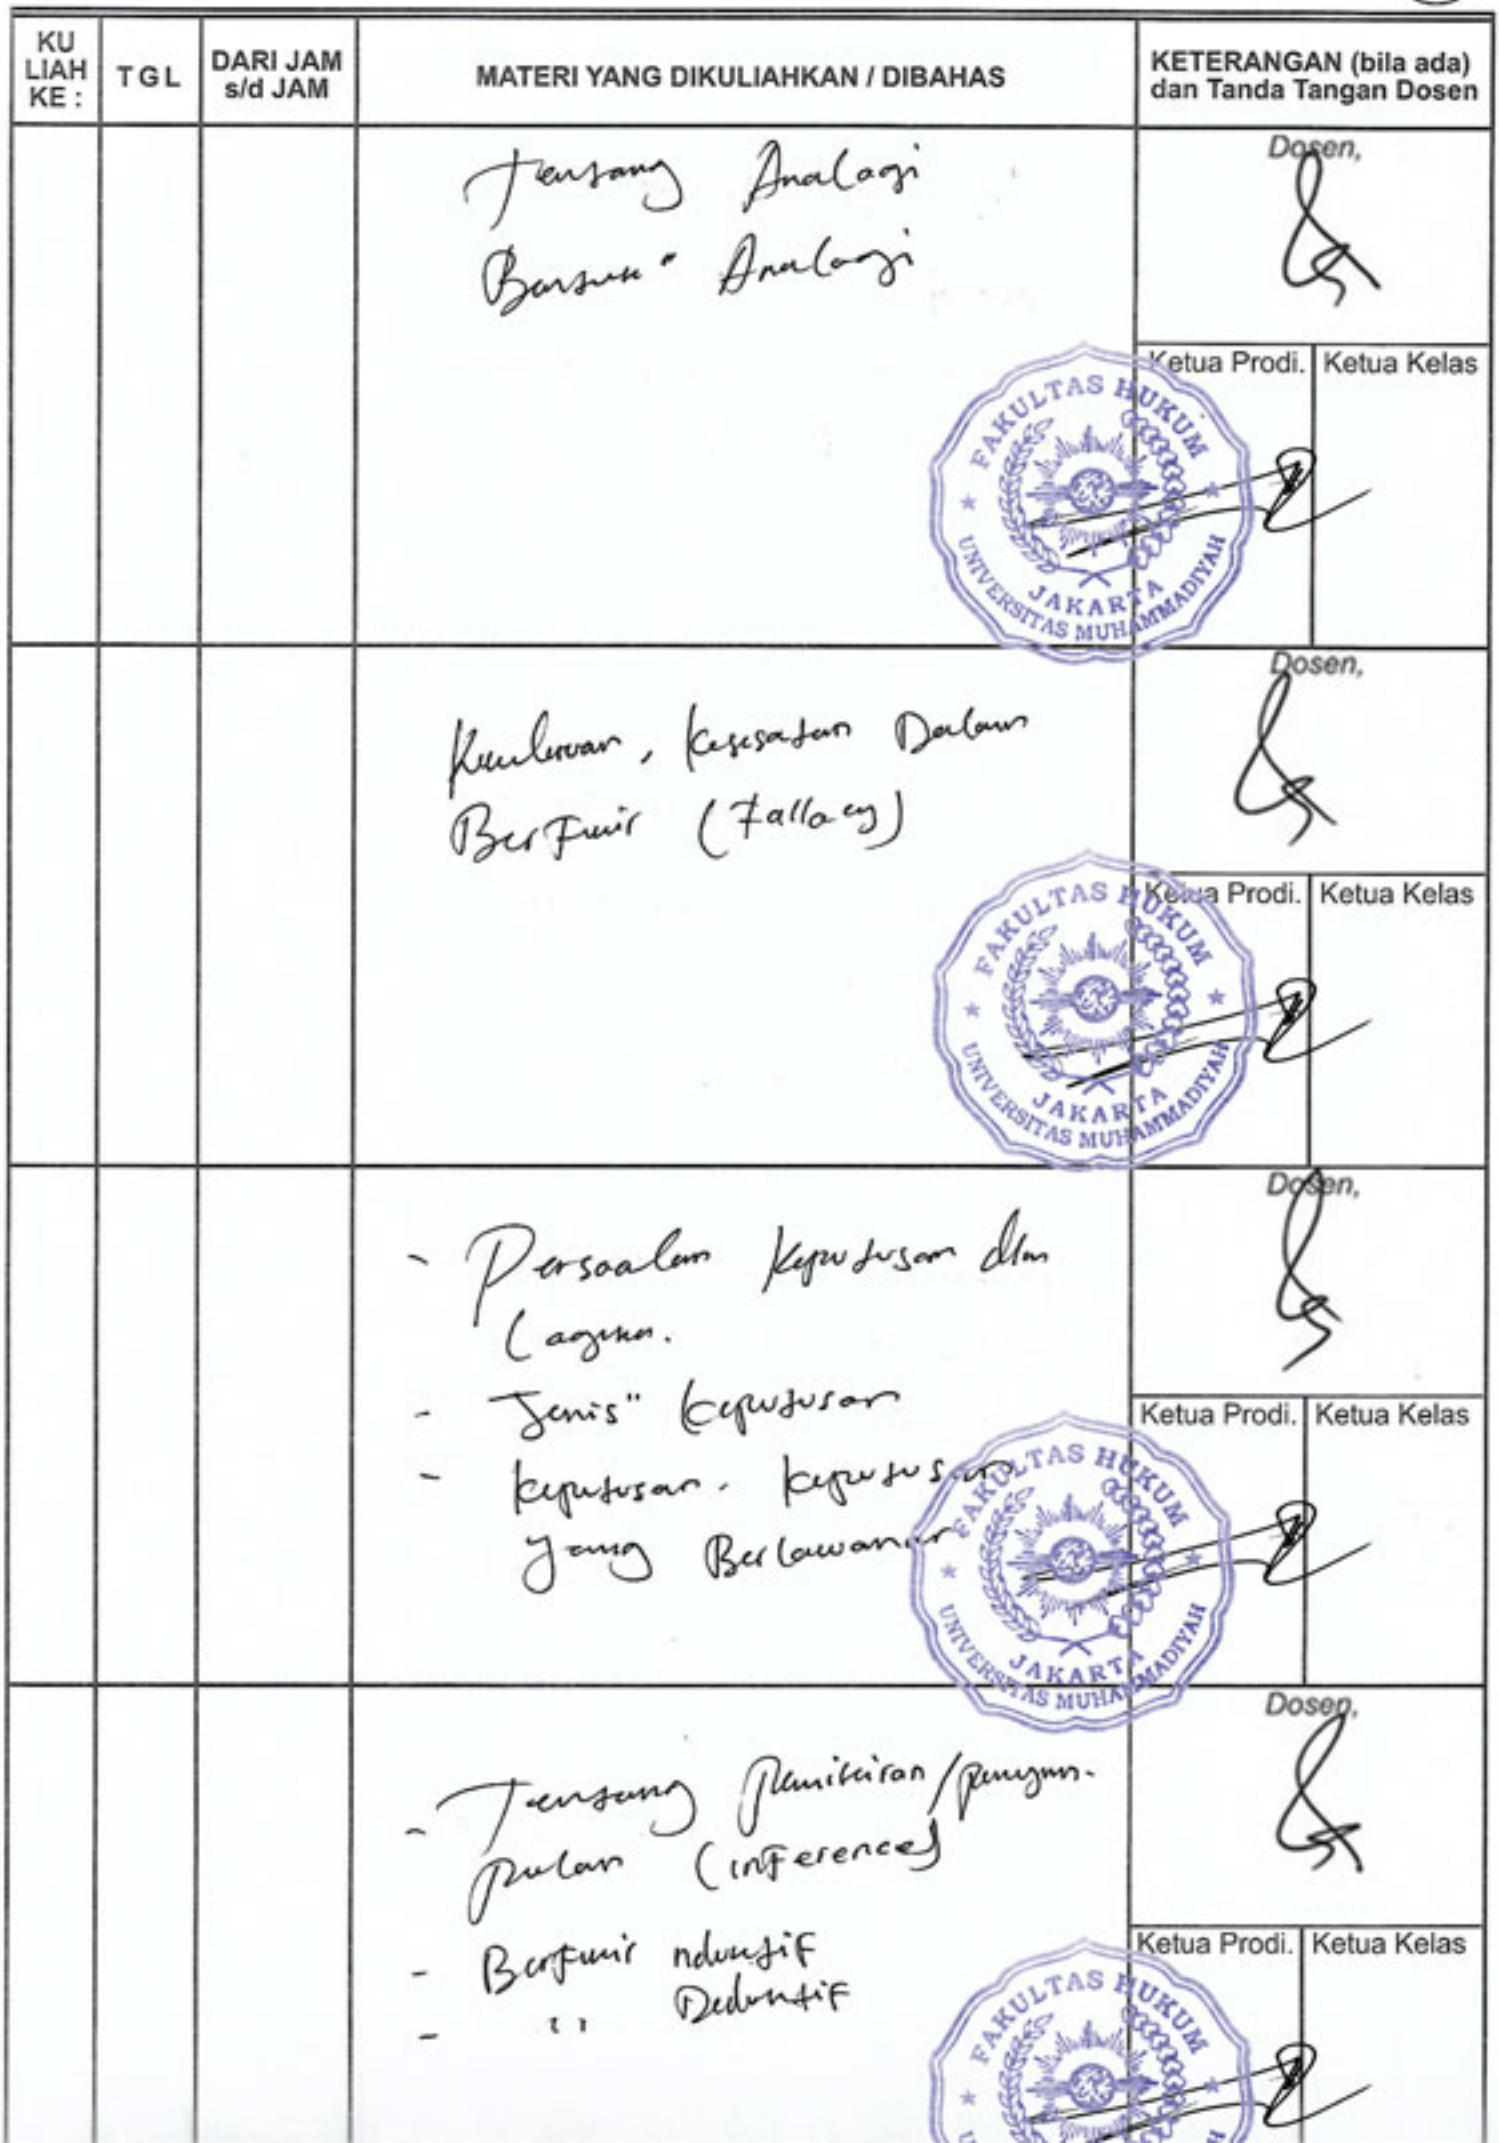 KU LIAH KE :
TGL
DARI JAM s/d JAM
MATERI YANG DIKULIAHKAN / DIBAHAS
KETERANGAN (bila ada) dan Tanda Tangan Dosen
Tentang Analogi
Analogi
Dosen,
Ketua Prodi.
Ketua Kelas
FAKULTAS HUKUM
JAKARTA
UNIVERSITAS MUHAMMADIYAH
Kekeliruan, Kesesatan Dalam
Berfikir (Fallacy)
Dosen,
Ketua Prodi.
Ketua Kelas
FAKULTAS HUKUM
JAKARTA
UNIVERSITAS MUHAMMADIYAH
- Persoalan Keputusan dlm
Logika.
- Jenis" Keputusan
- Keputusan. Keputusan
yang Berlawanan
Dosen,
Ketua Prodi.
Ketua Kelas
FAKULTAS HUKUM
JAKARTA
UNIVERSITAS MUHAMMADIYAH
- Tentang Pemikiran/penyim-
pulan (inference)
- Berfikir nduktif
- " Deduktif
Dosen,
Ketua Prodi.
Ketua Kelas
FAKULTAS HUKUM